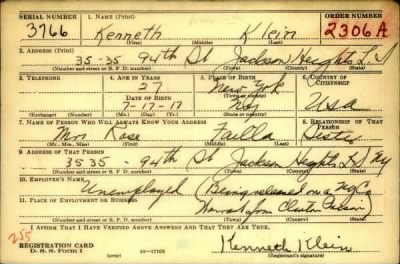 SERIAL NUMBER 1. NAME (Print) ORDER NUMBER
3766 Kenneth Klein 2306A
(First) (Middle) (Last)
2. ADDRESS (Print)
35-35 94th St Jackson Heights L.I
(Number and street or R. F. D. number) (Town) (County) (State)
3. TELEPHONE 4. AGE IN YEARS 5. PLACE OF BIRTH 6. COUNTRY OF CITIZENSHIP
27 New York
DATE OF BIRTH
7-17-17 NY USA
(Exchange) (Number) (Mo.) (Day) (Yr.) (State or country)
7. NAME OF PERSON WHO WILL ALWAYS KNOW YOUR ADDRESS 8. RELATIONSHIP OF THAT PERSON
Mrs Rose Faella Sister
(Mr., Mrs., Miss) (First) (Middle) (Last)
9. ADDRESS OF THAT PERSON
35 35 - 94th St Jackson Heights L.I NY
(Number and street or R. F. D. number) (Town) (County) (State)
10. EMPLOYER'S NAME
Unemployed (Being released on a
11. PLACE OF EMPLOYMENT OR BUSINESS
Warrant from Clinton Prison)
(Number and street or R. F. D. number) (Town) (County) (State)
I AFFIRM THAT I HAVE VERIFIED ABOVE ANSWERS AND THAT THEY ARE TRUE.
255
REGISTRATION CARD
D. S. S. Form 1 Kenneth Klein
(Registrant's signature)